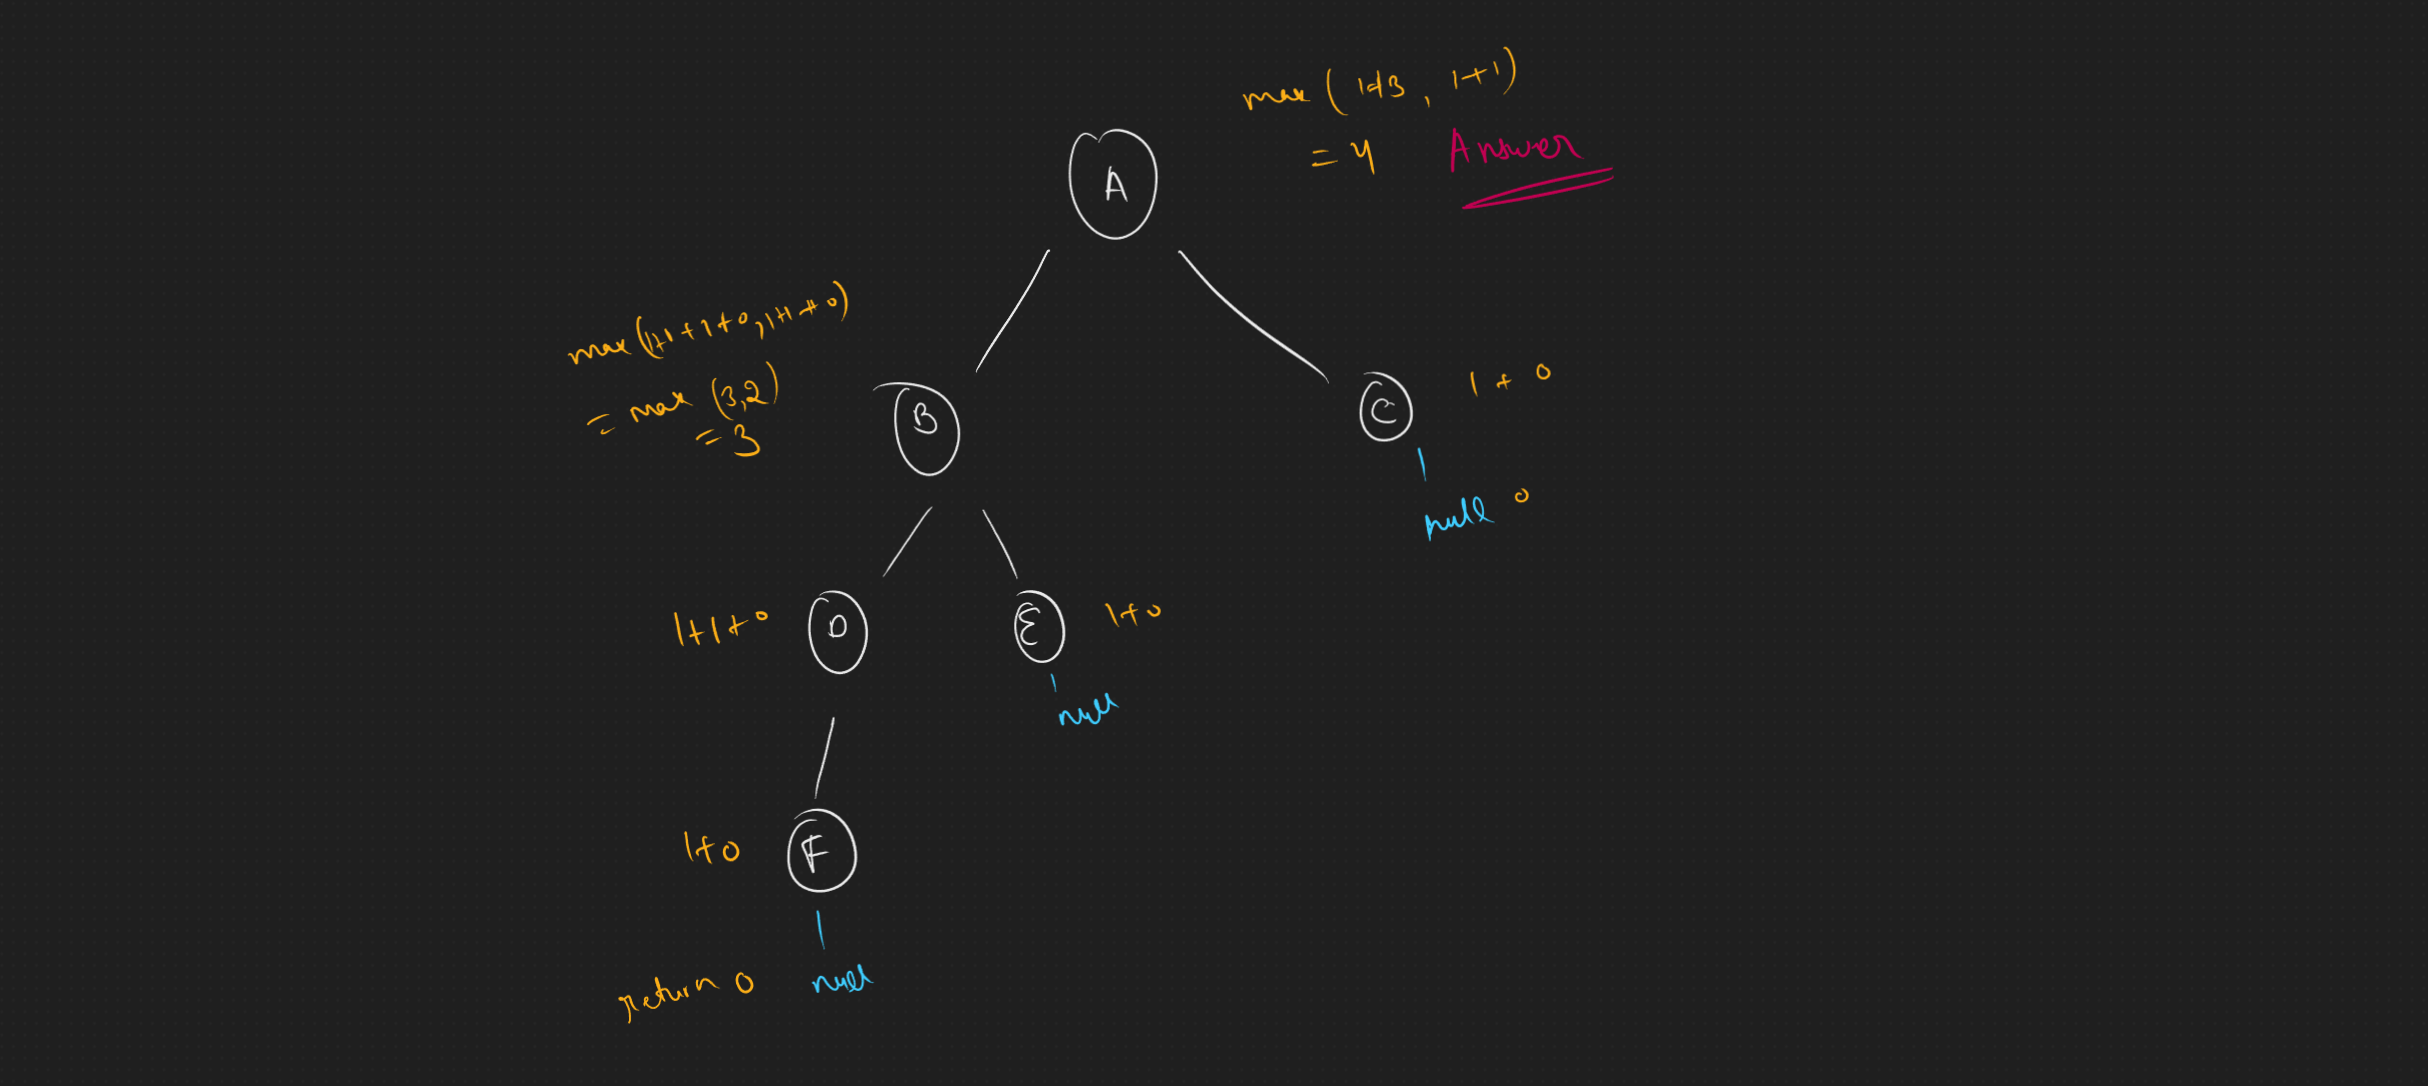 max (1+3, 1+1)
= 4 Answer
A
max (1+1+1+0, 1+1+0)
= max (3,2)
= 3
B
C
1 + 0
null 0
1+1+0
D
E
1+0
null
1+0
F
return 0
null